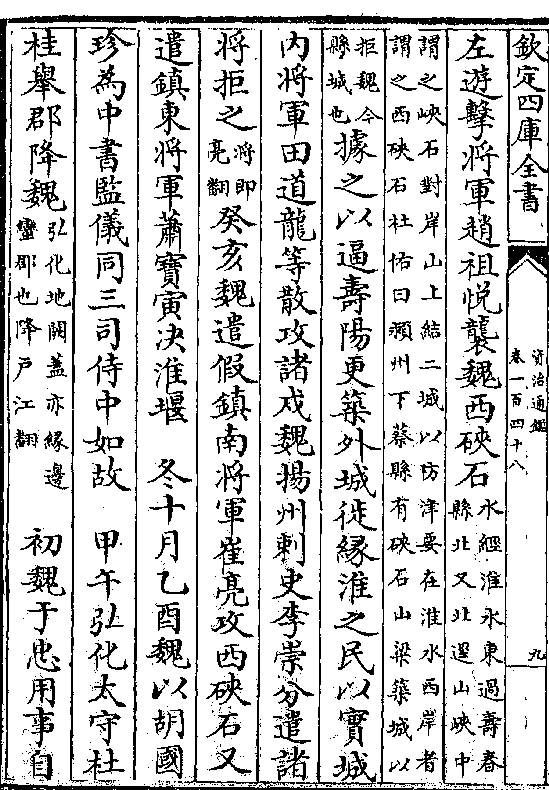 欽定四庫全書
資治通鑑
卷一百四十八
九
左遊擊將軍趙祖悅襲魏西硤石
水經淮水東過壽春
縣北又北逕山峽中
謂之峽石對岸山上結二城以防津要在淮水西岸者
謂之西硤石杜佑曰潁州下蔡縣有硤石山梁築城以
拒魏今
縣城也
據之以逼壽陽更築外城徙緣淮之民以實城
内將軍田道龍等散攻諸戍魏揚州刺史李崇分遣諸
將拒之
將即
亮翻
癸亥魏遣假鎮南將軍崔亮攻西硤石又
遣鎮東將軍蕭寶寅决淮堰 冬十月乙酉魏以胡國
珍為中書監儀同三司侍中如故 甲午弘化太守杜
桂舉郡降魏
弘化地闕蓋亦緣邊
蠻郡也降戶江翻
初魏于忠用事自